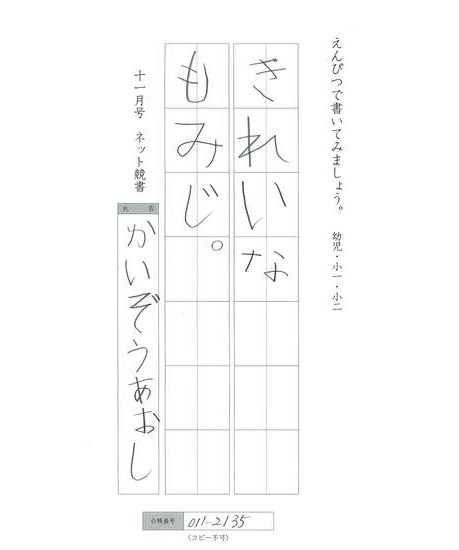 えんぴつで書いてみましょう。 幼児・小一・小二
きれいな
もみじ。
十一月号 ネット競書
氏名
かいぞうあおし
合機番号 011-2135
(コピー不可)